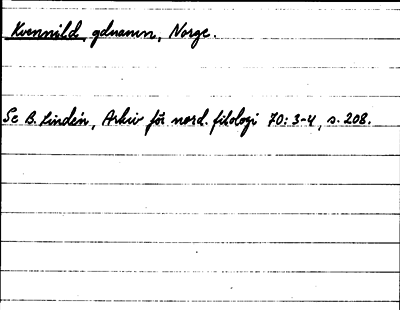 Kvennild, gdnamn, Norge.
Se B. Lindén, Arkiv för nord. filologi 70:3-4, s. 208.